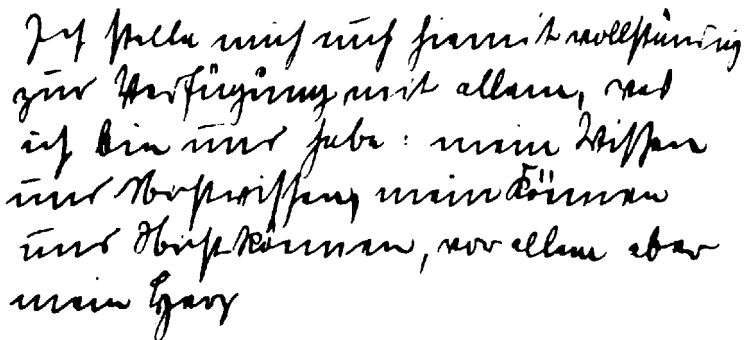 Ich stelle mich auch hiemit vollständig
zur Verfügung mit allem, was
ich bin und habe: mein Wissen
und Nichtwissen, mein Können
und Nichtkönnen, vor allem aber
mein Herz